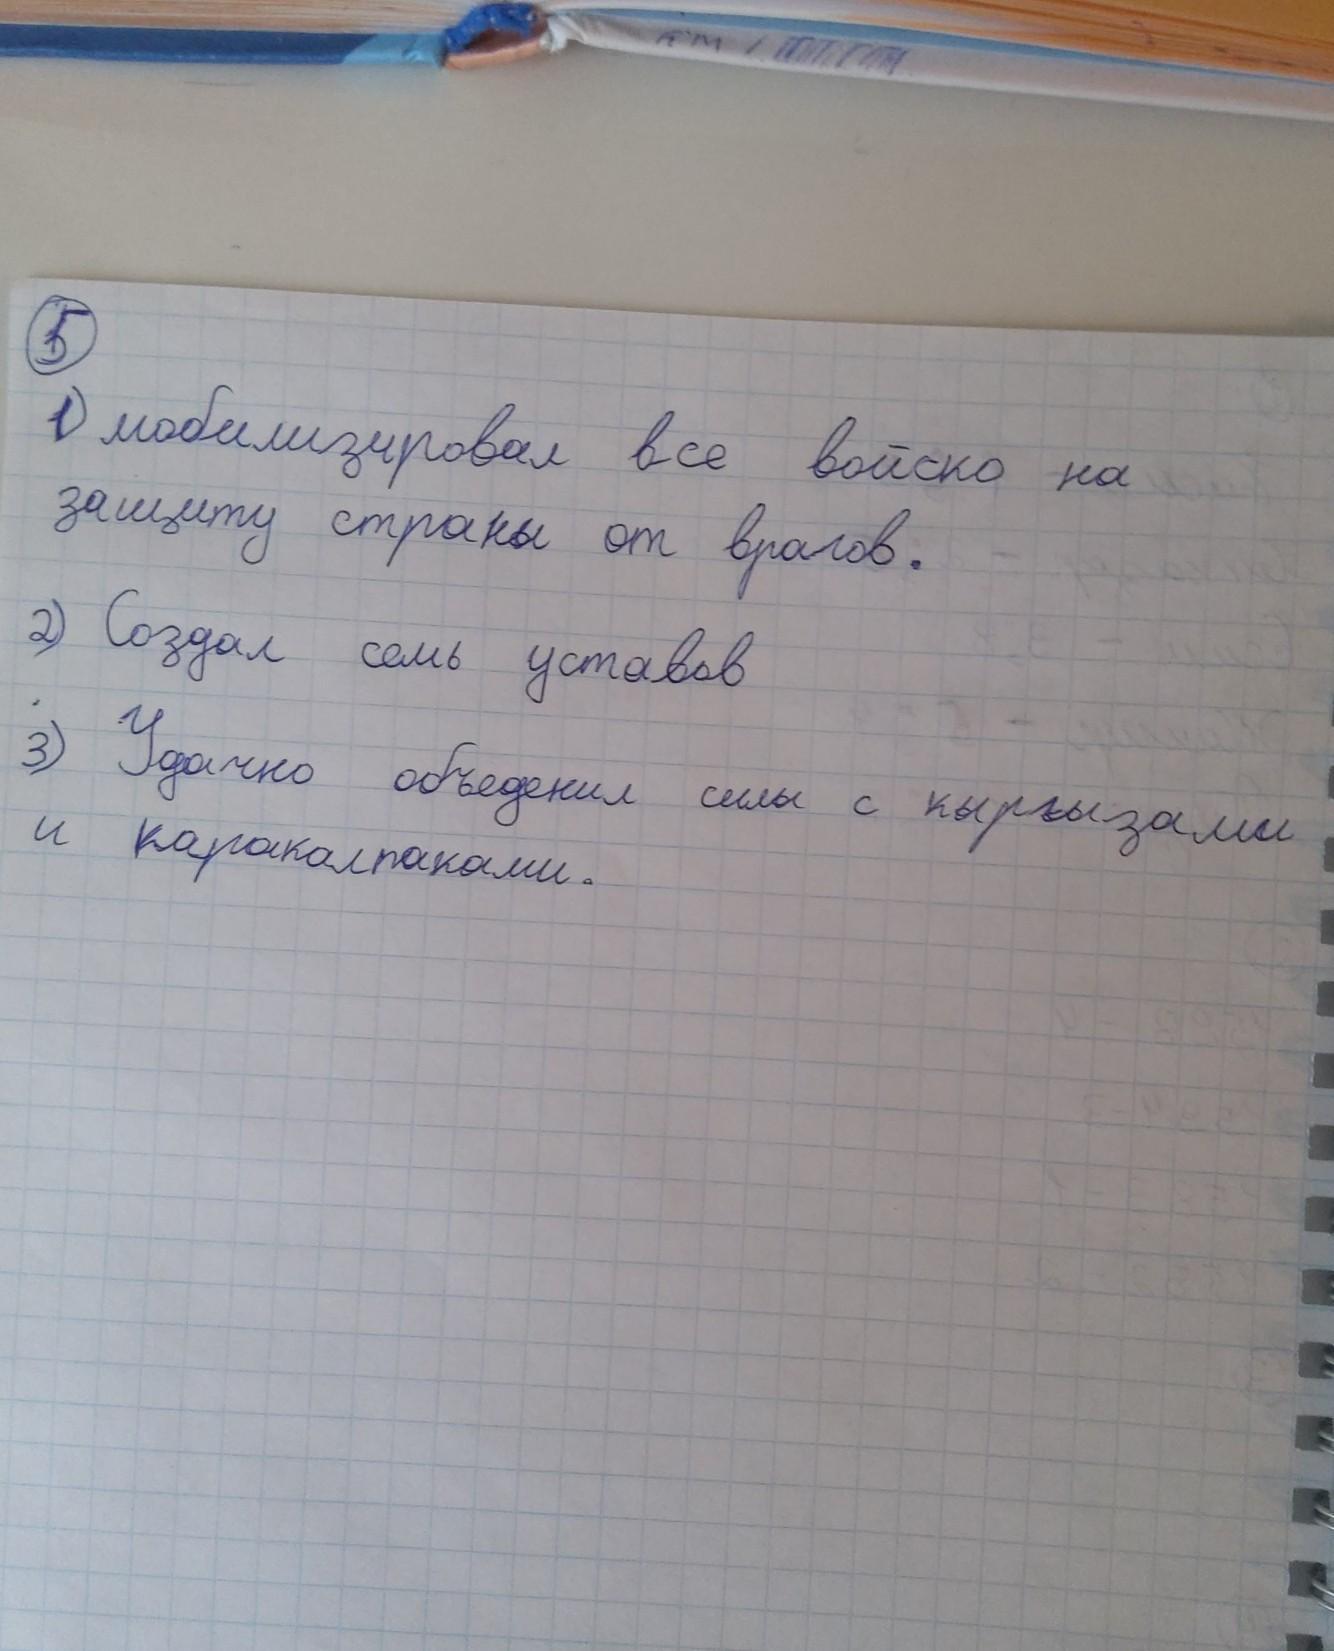 5
1) мобилизировал все войско на
защиту страны от врагов.
2) Создал семь уставов
3) Удачно объеденил силы с кыргызами
и каракалпаками.